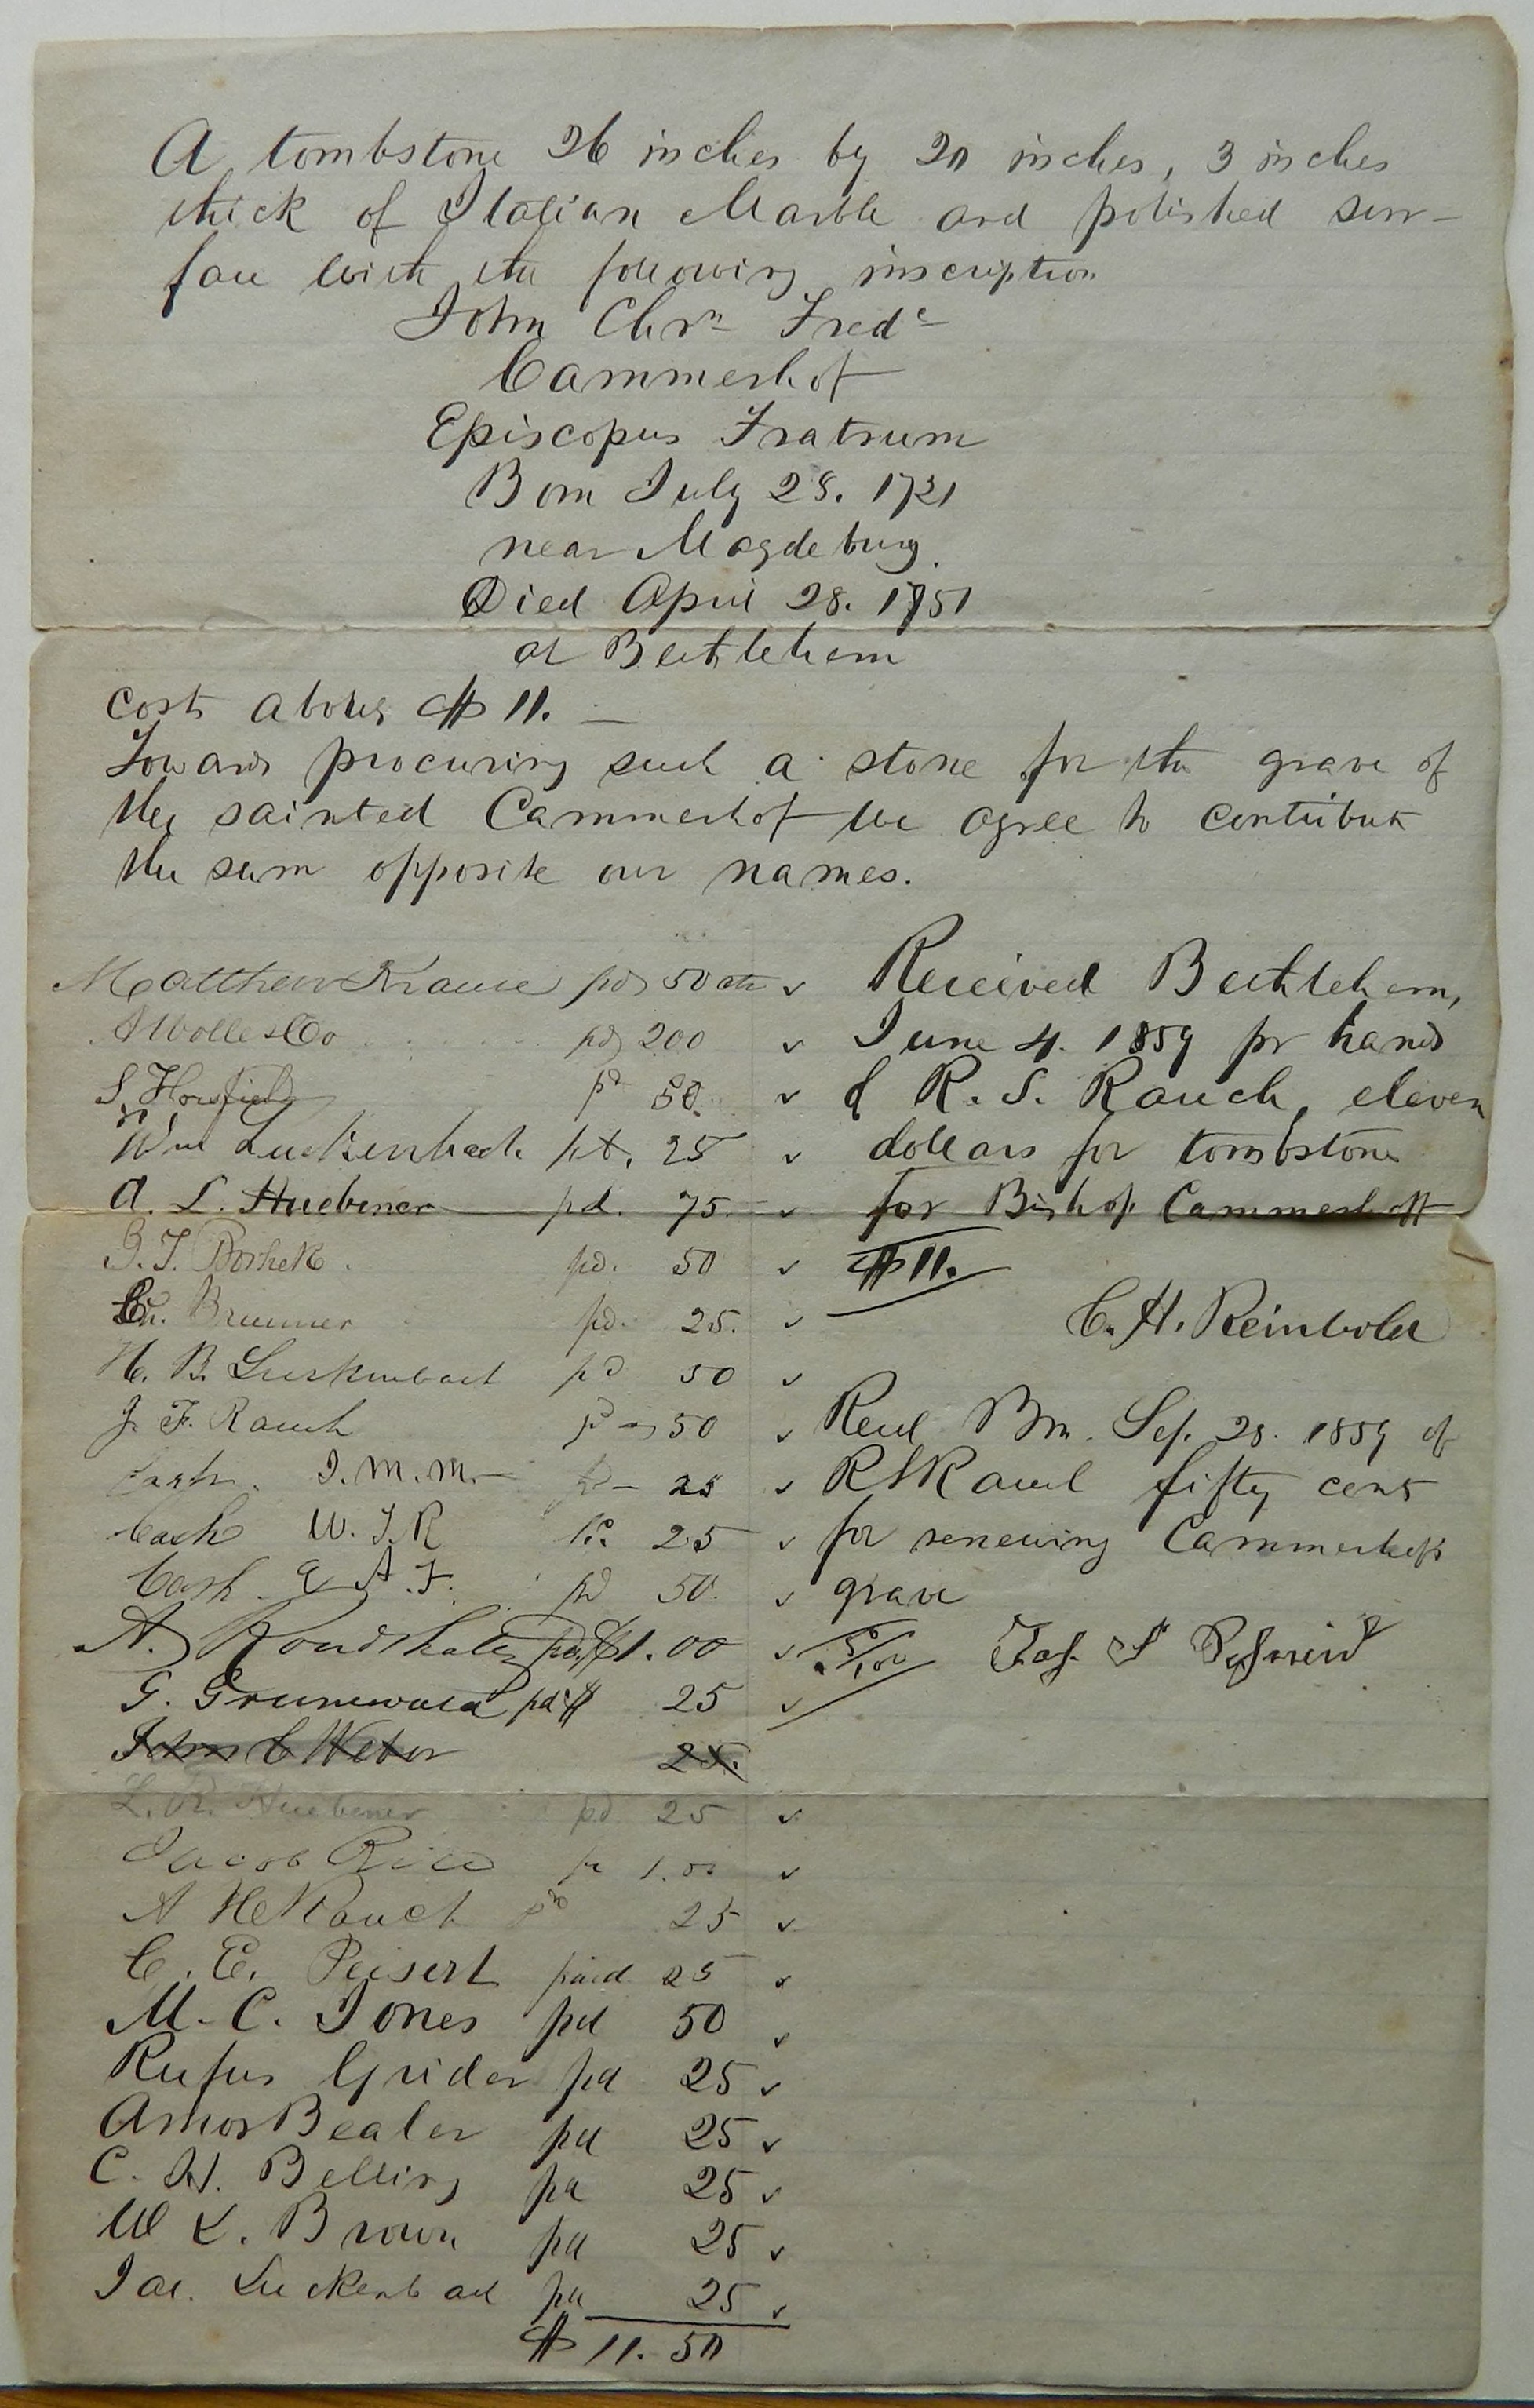 A tombstone 26 inches by 20 inches, 3 inches
thick of Italian Marble and polished sur-
face with the following inscription
John Chrn Fredc
Cammerhof
Episcopus Fratrum
Born July 28. 1721
near Magdeburg.
Died April 28. 1751
at Bethlehem
costs about $11. —
Towards procuring such a stone for the grave of
the sainted Cammerhof we agree to contribute
the sum opposite our names.
Matthew Krause pd 50 cts ✓
A Wolle & Co pd 200 ✓
S. Horsfield pd 50. ✓
Wm Luckenbach pd. 25 ✓
A. L. Huebener pd. 75. ✓
J. T. Borhek pd. 50 ✓
Ch. Brunner pd. 25. ✓
H. B. Luckenbach pd 50 ✓
J. F. Rauch pd 50 ✓
Cash. J. M. M. pd 25 ✓
Cash W. T. R pd. 25 ✓
Cash A. F. pd 50. ✓
A. Rondthaler pd. $1.00 ✓
G. Grunewald pd $ 25 ✓
John C Weber 25.
L. R. Huebener pd 25 ✓
Jacob Rice pd 1.00 ✓
A H Rauch pd 25 ✓
C. E. Peisert paid 25 ✓
M. C. Jones pd 50 ✓
Rufus Grider pd 25 ✓
Amos Bealer pd 25 ✓
C. W. Belling pd 25 ✓
W L. Brown pd 25 ✓
Jac. Luckenbach pd 25 ✓
$ 11. 50
Received Bethlehem,
June 4. 1859 pr hands
of R. S. Rauch, eleven
dollars for tombstone
for Bishop Cammerhoff
$11.
C. H. Reinbold
Recd Bm. Sep. 28. 1859 of
RSRauch fifty cents
for renewing Cammerhofs
grave
50/100 Jas. Schneid